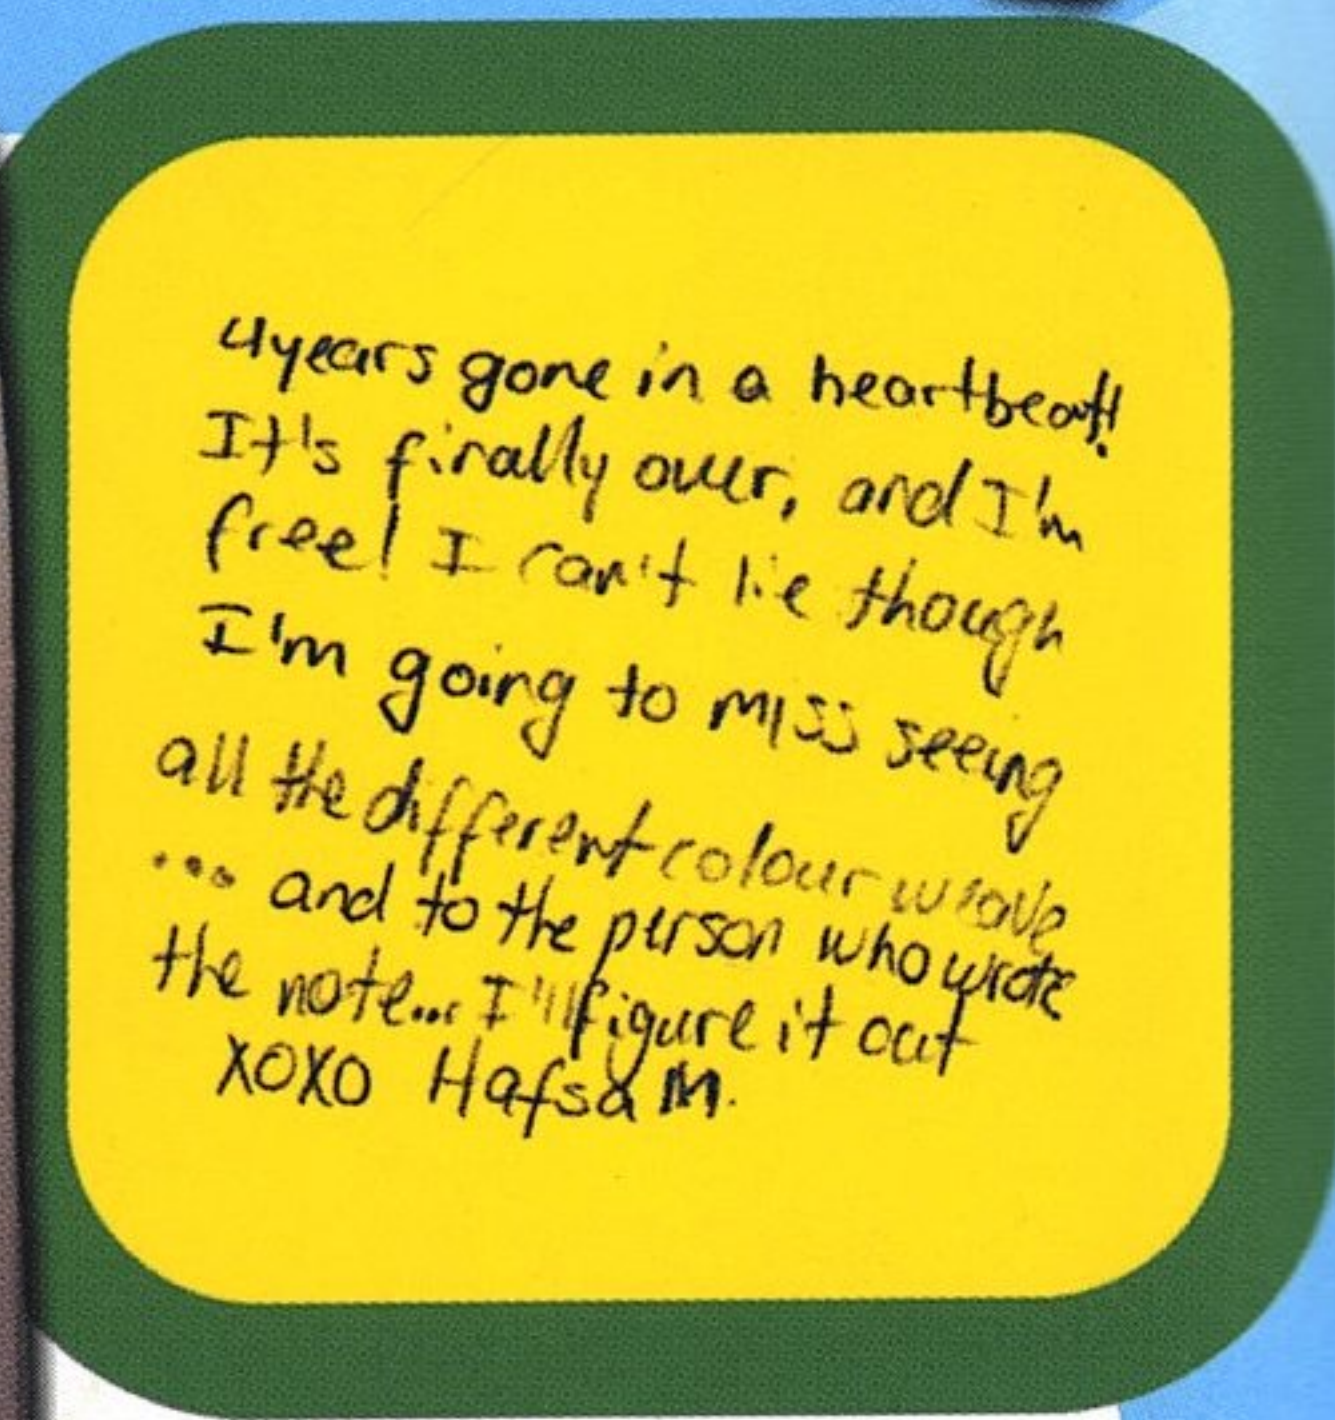 4years gone in a heartbeat!
It's finally over, and I'm
free! I can't lie though
I'm going to miss seeing
all the different colour weave
... and to the person who wrote
the note... I'll figure it out
XOXO Hafsa M.